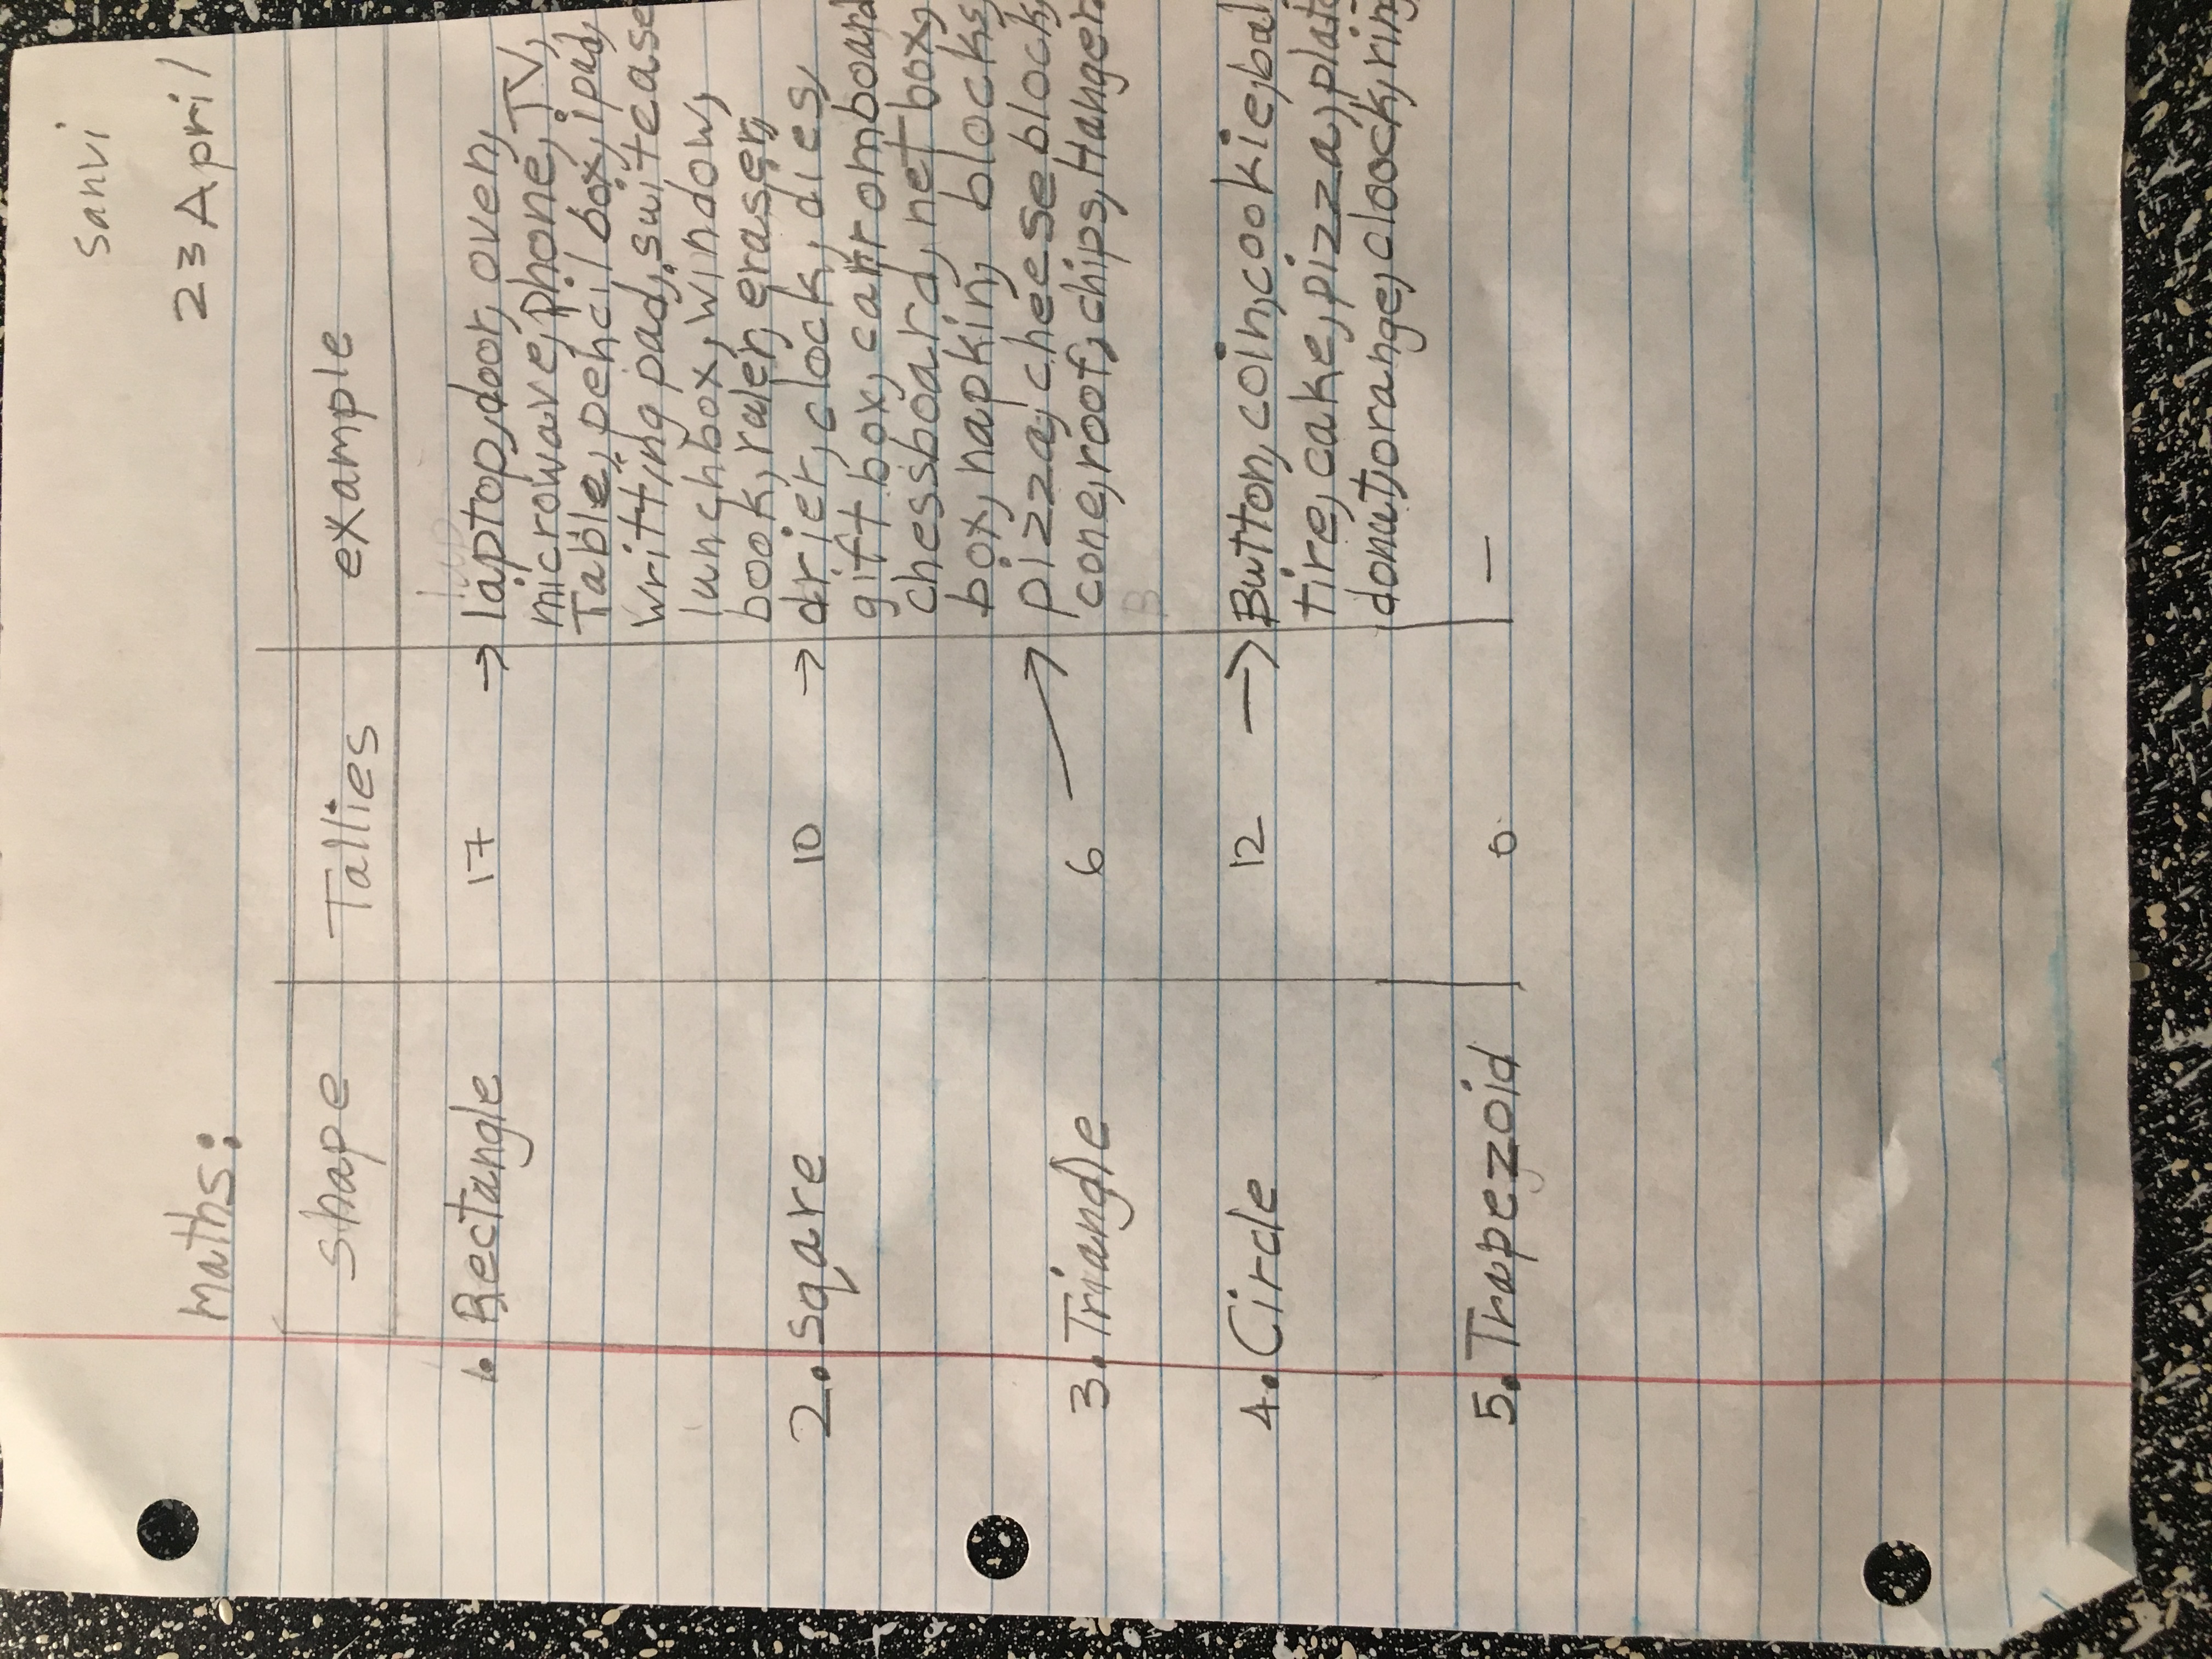 sanvi
23 April
Maths:
shape Tallies example
1. Rectangle 17 → laptop, door, oven,
microwave, phone, TV,
Table, pencil box, ipad,
writting pad, suitcase
lunchbox, window,
book, ruler, eraser,
2. sqare 10 → drier, clock, dies,
gift box, carromboard
chessboard, net box,
box, napkin, blocks,
pizza, cheese block,
3. Triangle 6 → cone, roof, chips, Hanger.
4. Circle 12 → Button, coin, cookie, bal
tire, cake, pizza, plate
donut, orange, cloock, ring
5. Trapezoid 0 —